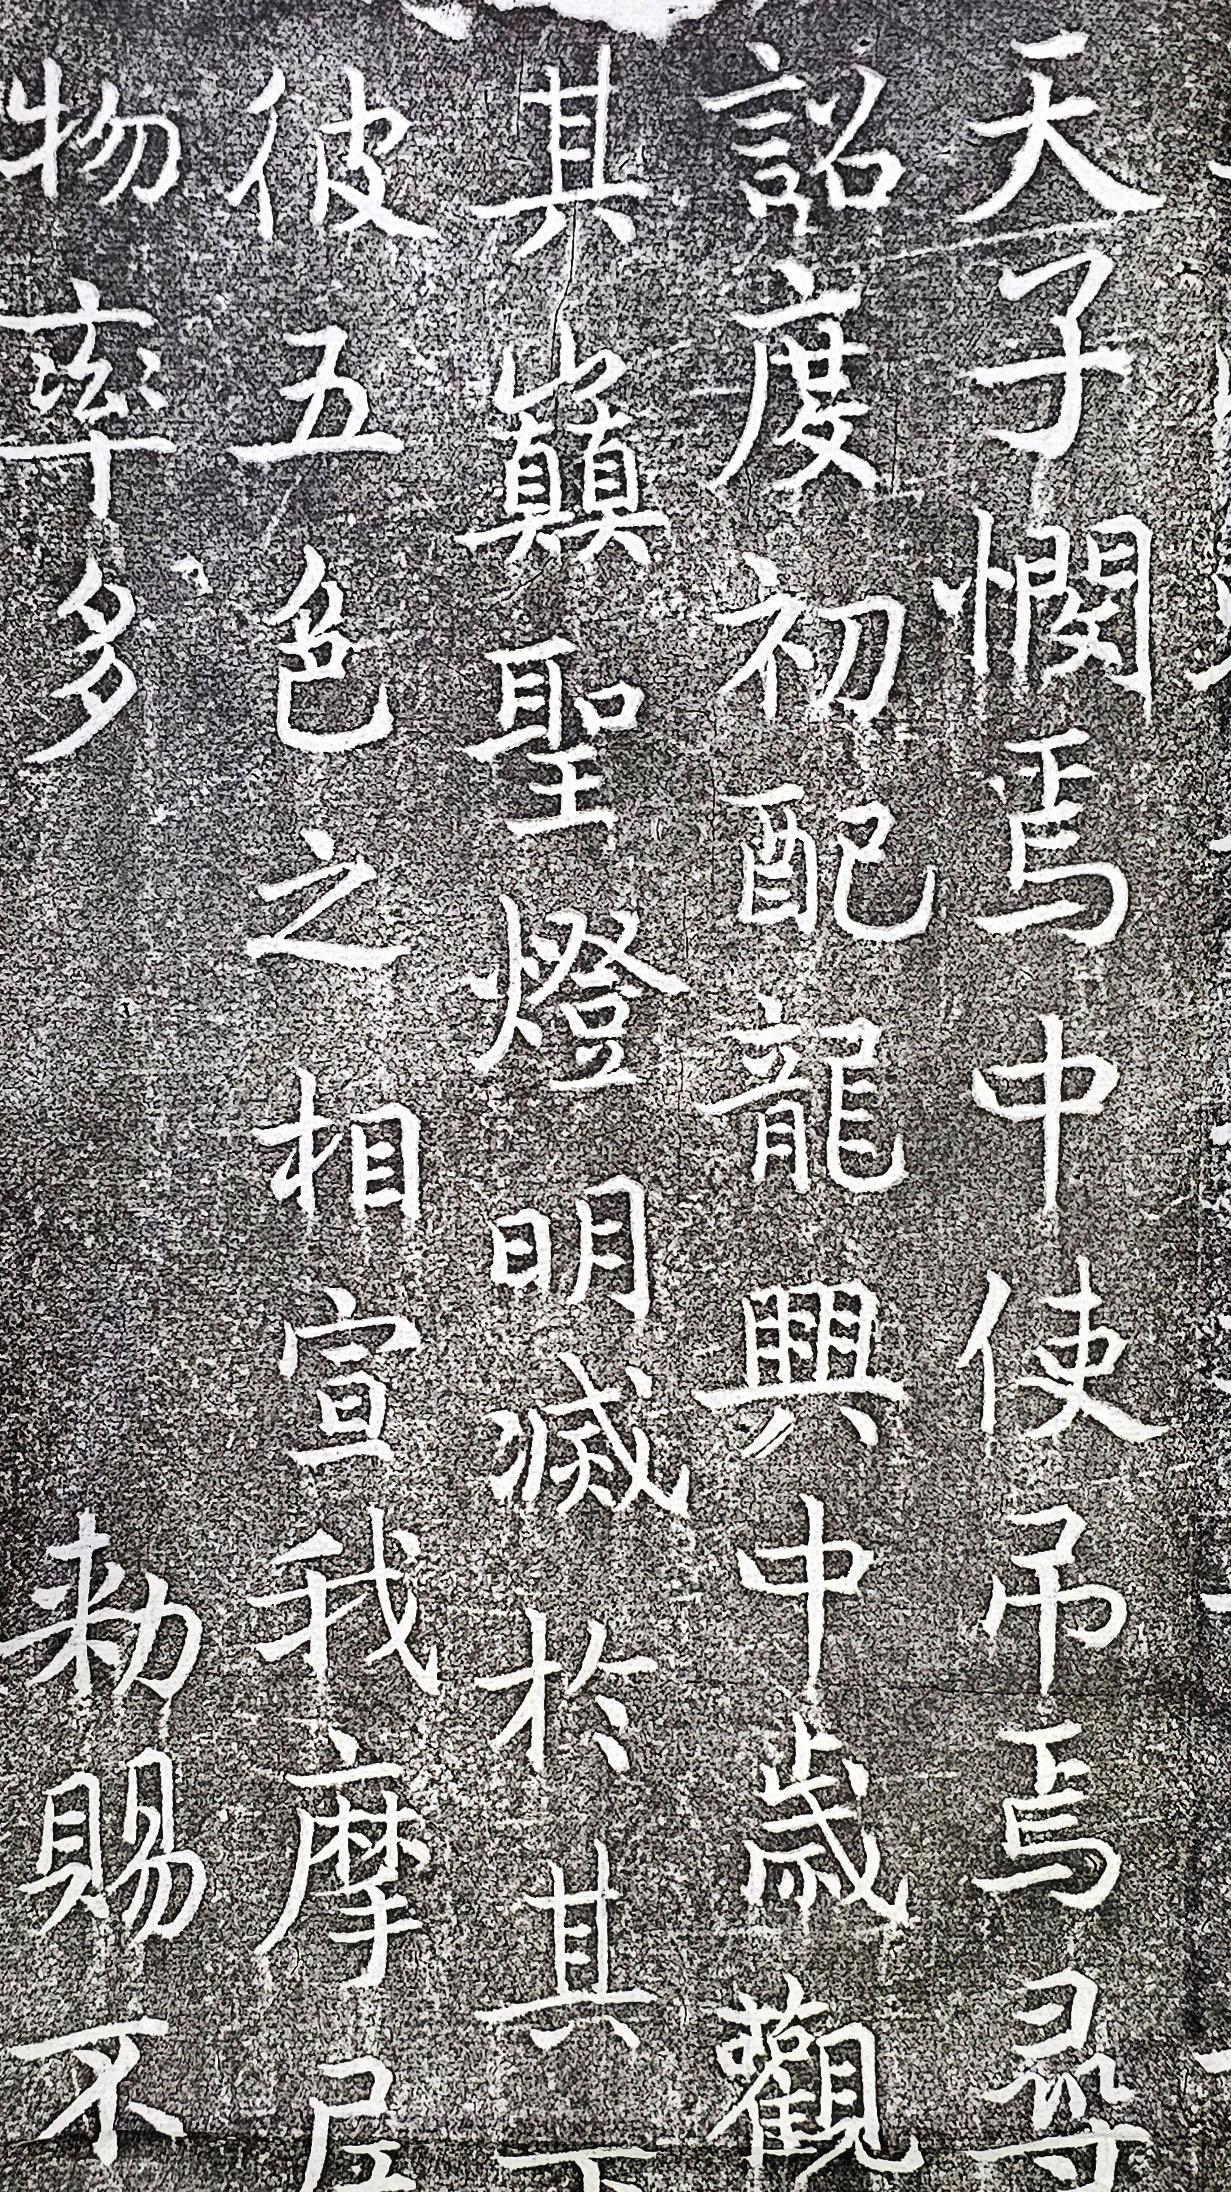 天子憫焉中使吊焉尋
詔度初配龍興中歲觀
其巔聖燈明滅於其下
彼五色之相宣我摩尼
物率多 勑賜不